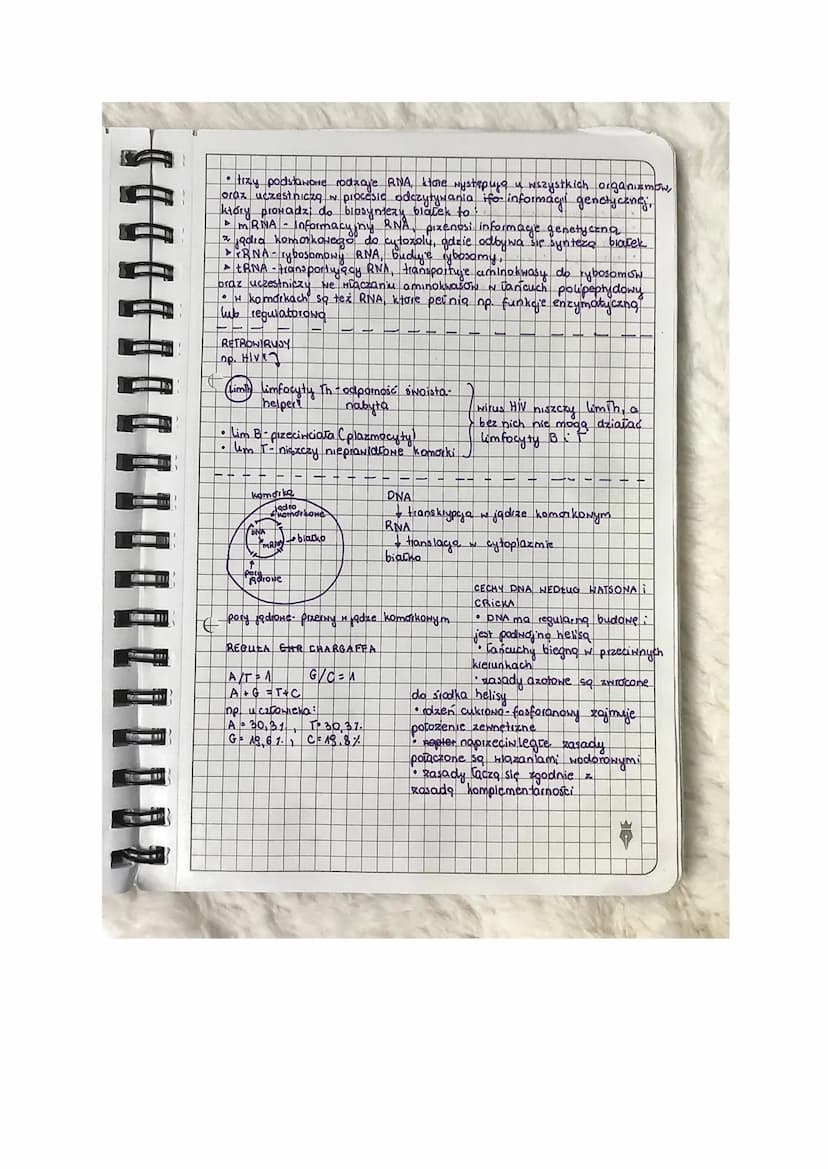 • trzy podstawowe rodzaje RNA, które występują u wszystkich organizmów,
oraz uczestniczą w procesie odczytywania ifo informacji genetycznej,
który prowadzi do biosyntezy białek to:
➤ mRNA - Informacyjny RNA, przenosi informację genetyczną
z jądra komórkowego do cytozolu, gdzie odbywa się synteza białek
➤ rRNA - rybosomowy RNA, buduje rybosomy,
➤ tRNA - transportujący RNA, transportuje aminokwasy do rybosomów
oraz uczestniczy we włączaniu aminokwasów w łańcuch polipeptydowy
• w komórkach są też RNA, które pełnią np. funkcję enzymatyczną
lub regulatorową
RETROWIRUSY
np. HIV
LimTh limfocyty Th - odporność swoista-
helper! nabyta
• lim B - przeciwciała (plazmocyty)
• lim T - niszczy nieprawidłowe komórki
wirus HIV niszczy limTh, a
bez nich nie mogą działać
limfocyty B i T
komórka
jądro
komórkowe
DNA
mRNA → białko
pory
jądrowe
DNA
↓ transkrypcja w jądrze komórkowym
RNA
↓ translacja w cytoplazmie
białko
pory jądrowe - przerwy w jądze komórkowym
REGUŁA CHR CHARGAFFA
A/T = 1 G/C = 1
A + G = T + C
np. u człowieka:
A = 30,3%, T = 30,3%
G = 19,6%, C = 19,8%
CECHY DNA WEDŁUG WATSONA i
CRICKA
• DNA ma regularną budowę i
jest podwójną helisą
• łańcuchy biegną w przeciwnych
kierunkach
• zasady azotowe są zwrócone
do środka helisy
• rdzeń cukrowo-fosforanowy zajmuje
położenie zewnętrzne
• napizer naprzeciwległe zasady
połączone są wiązaniami wodorowymi
• zasady łączą się zgodnie z
zasadą komplementarności